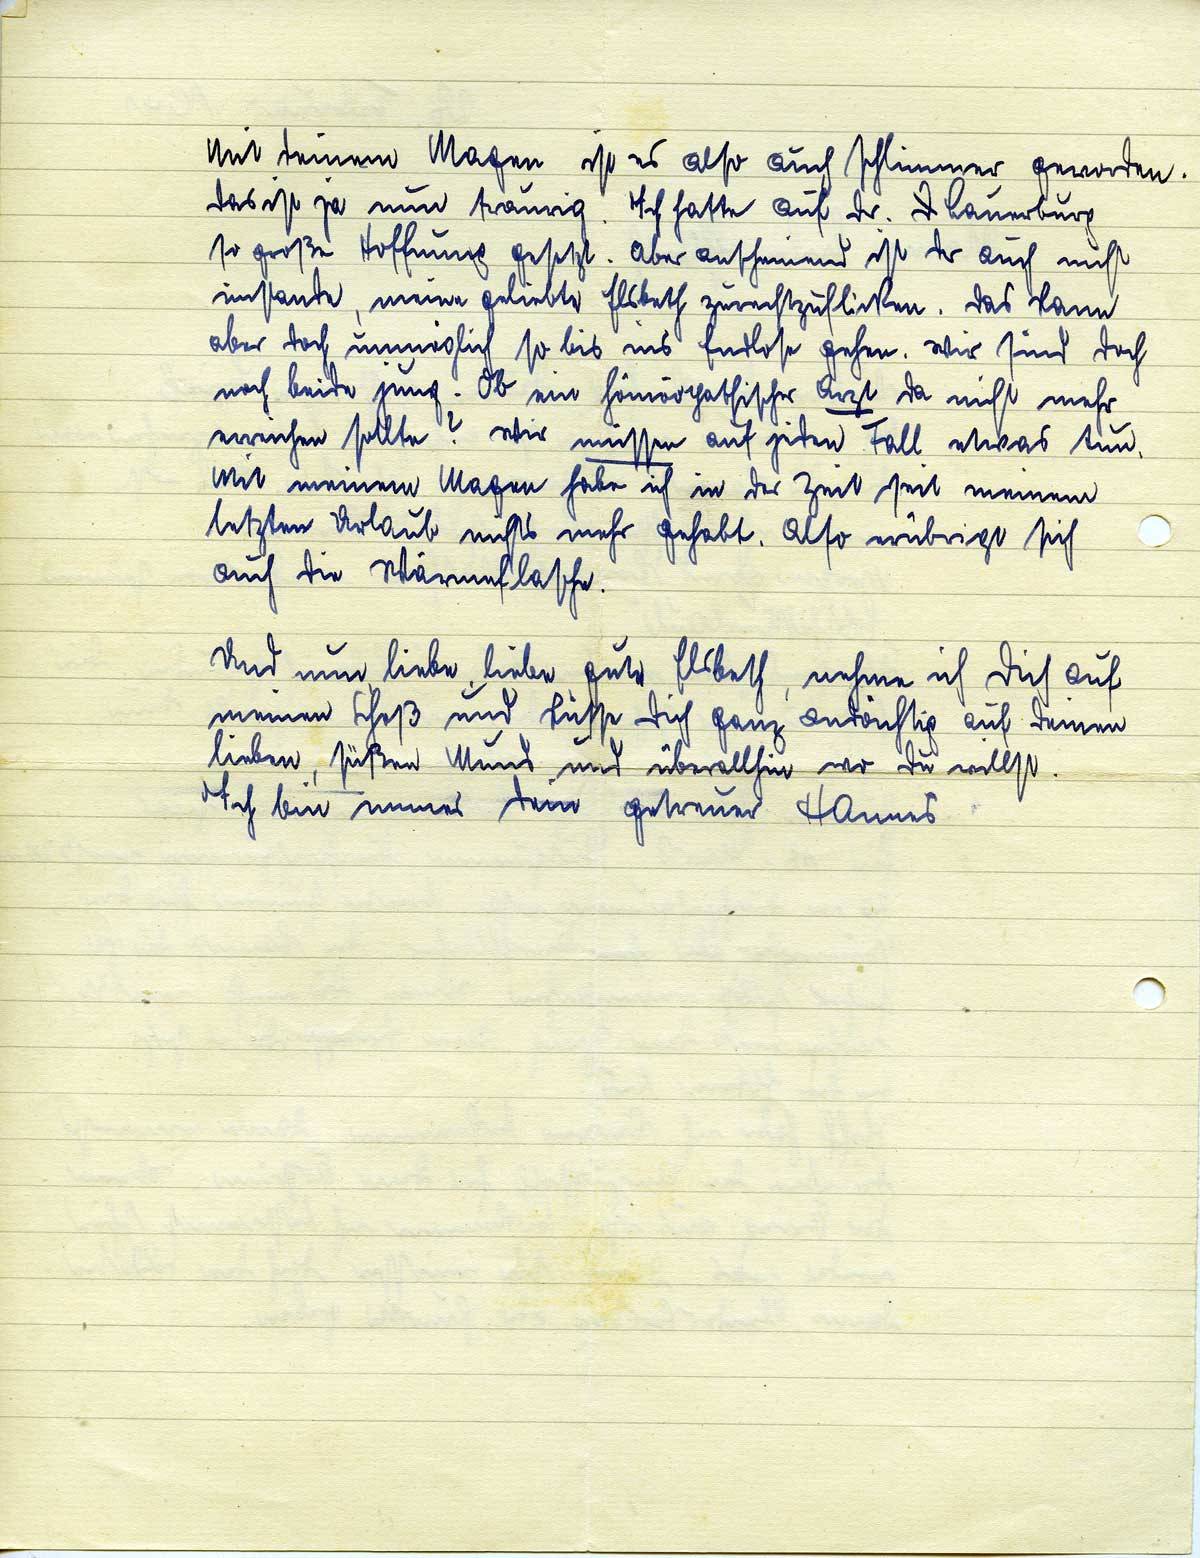 Mit deinem Magen ist es also auch schlimmer geworden.
Das ist ja nun traurig. Ich hatte auf Dr. Lauerburg
so große Hoffnung gesetzt. Aber anscheinend ist der auch nicht
imstande, meine geliebte Elsbeth zurechtzuflicken. Das kann
aber doch unmöglich so bis ins Endlose gehen. Wir sind doch
noch beide jung. Ob ein homöopathischer Arzt da nicht mehr
erreichen sollte? Wir müssen auf jeden Fall etwas tun.
Mit meinem Magen habe ich in der Zeit seit meinem
letzten Urlaub nichts mehr gehabt. Also erübrigt sich
auch die Wärmeflasche.
Und nun, liebe, liebe gute Elsbeth, nehme ich Dich auf
meinen Schoß und küsse Dich ganz andächtig auf deinen
lieben, süßen Mund und überallhin wo du willst.
Ich bin immer dein getreuer Hannes